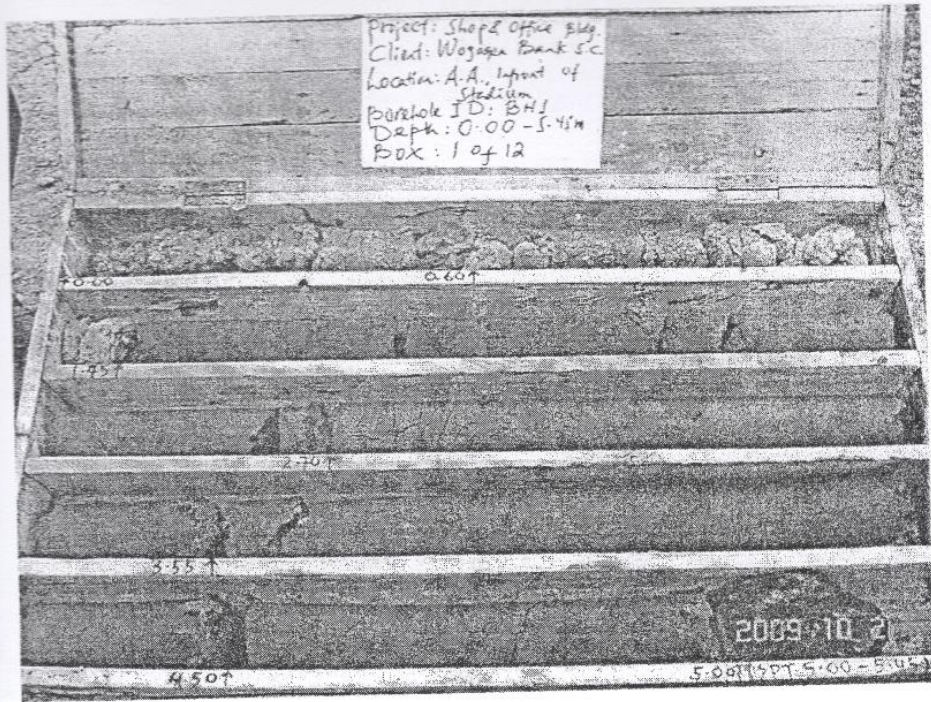 Project: Shop & Office Bldg.
Client: Wogagen Bank S.C
Location: A.A., Infront of
Stadium
Borehole ID: BH1
Depth: 0.00-5.45m
BOX: 1 of 12
↑0.00 0.60↑
1.45↑
2.70↑
3.55↑
2009 10 2
4.50↑ 5.00↑(SPT 5.00-5.45)